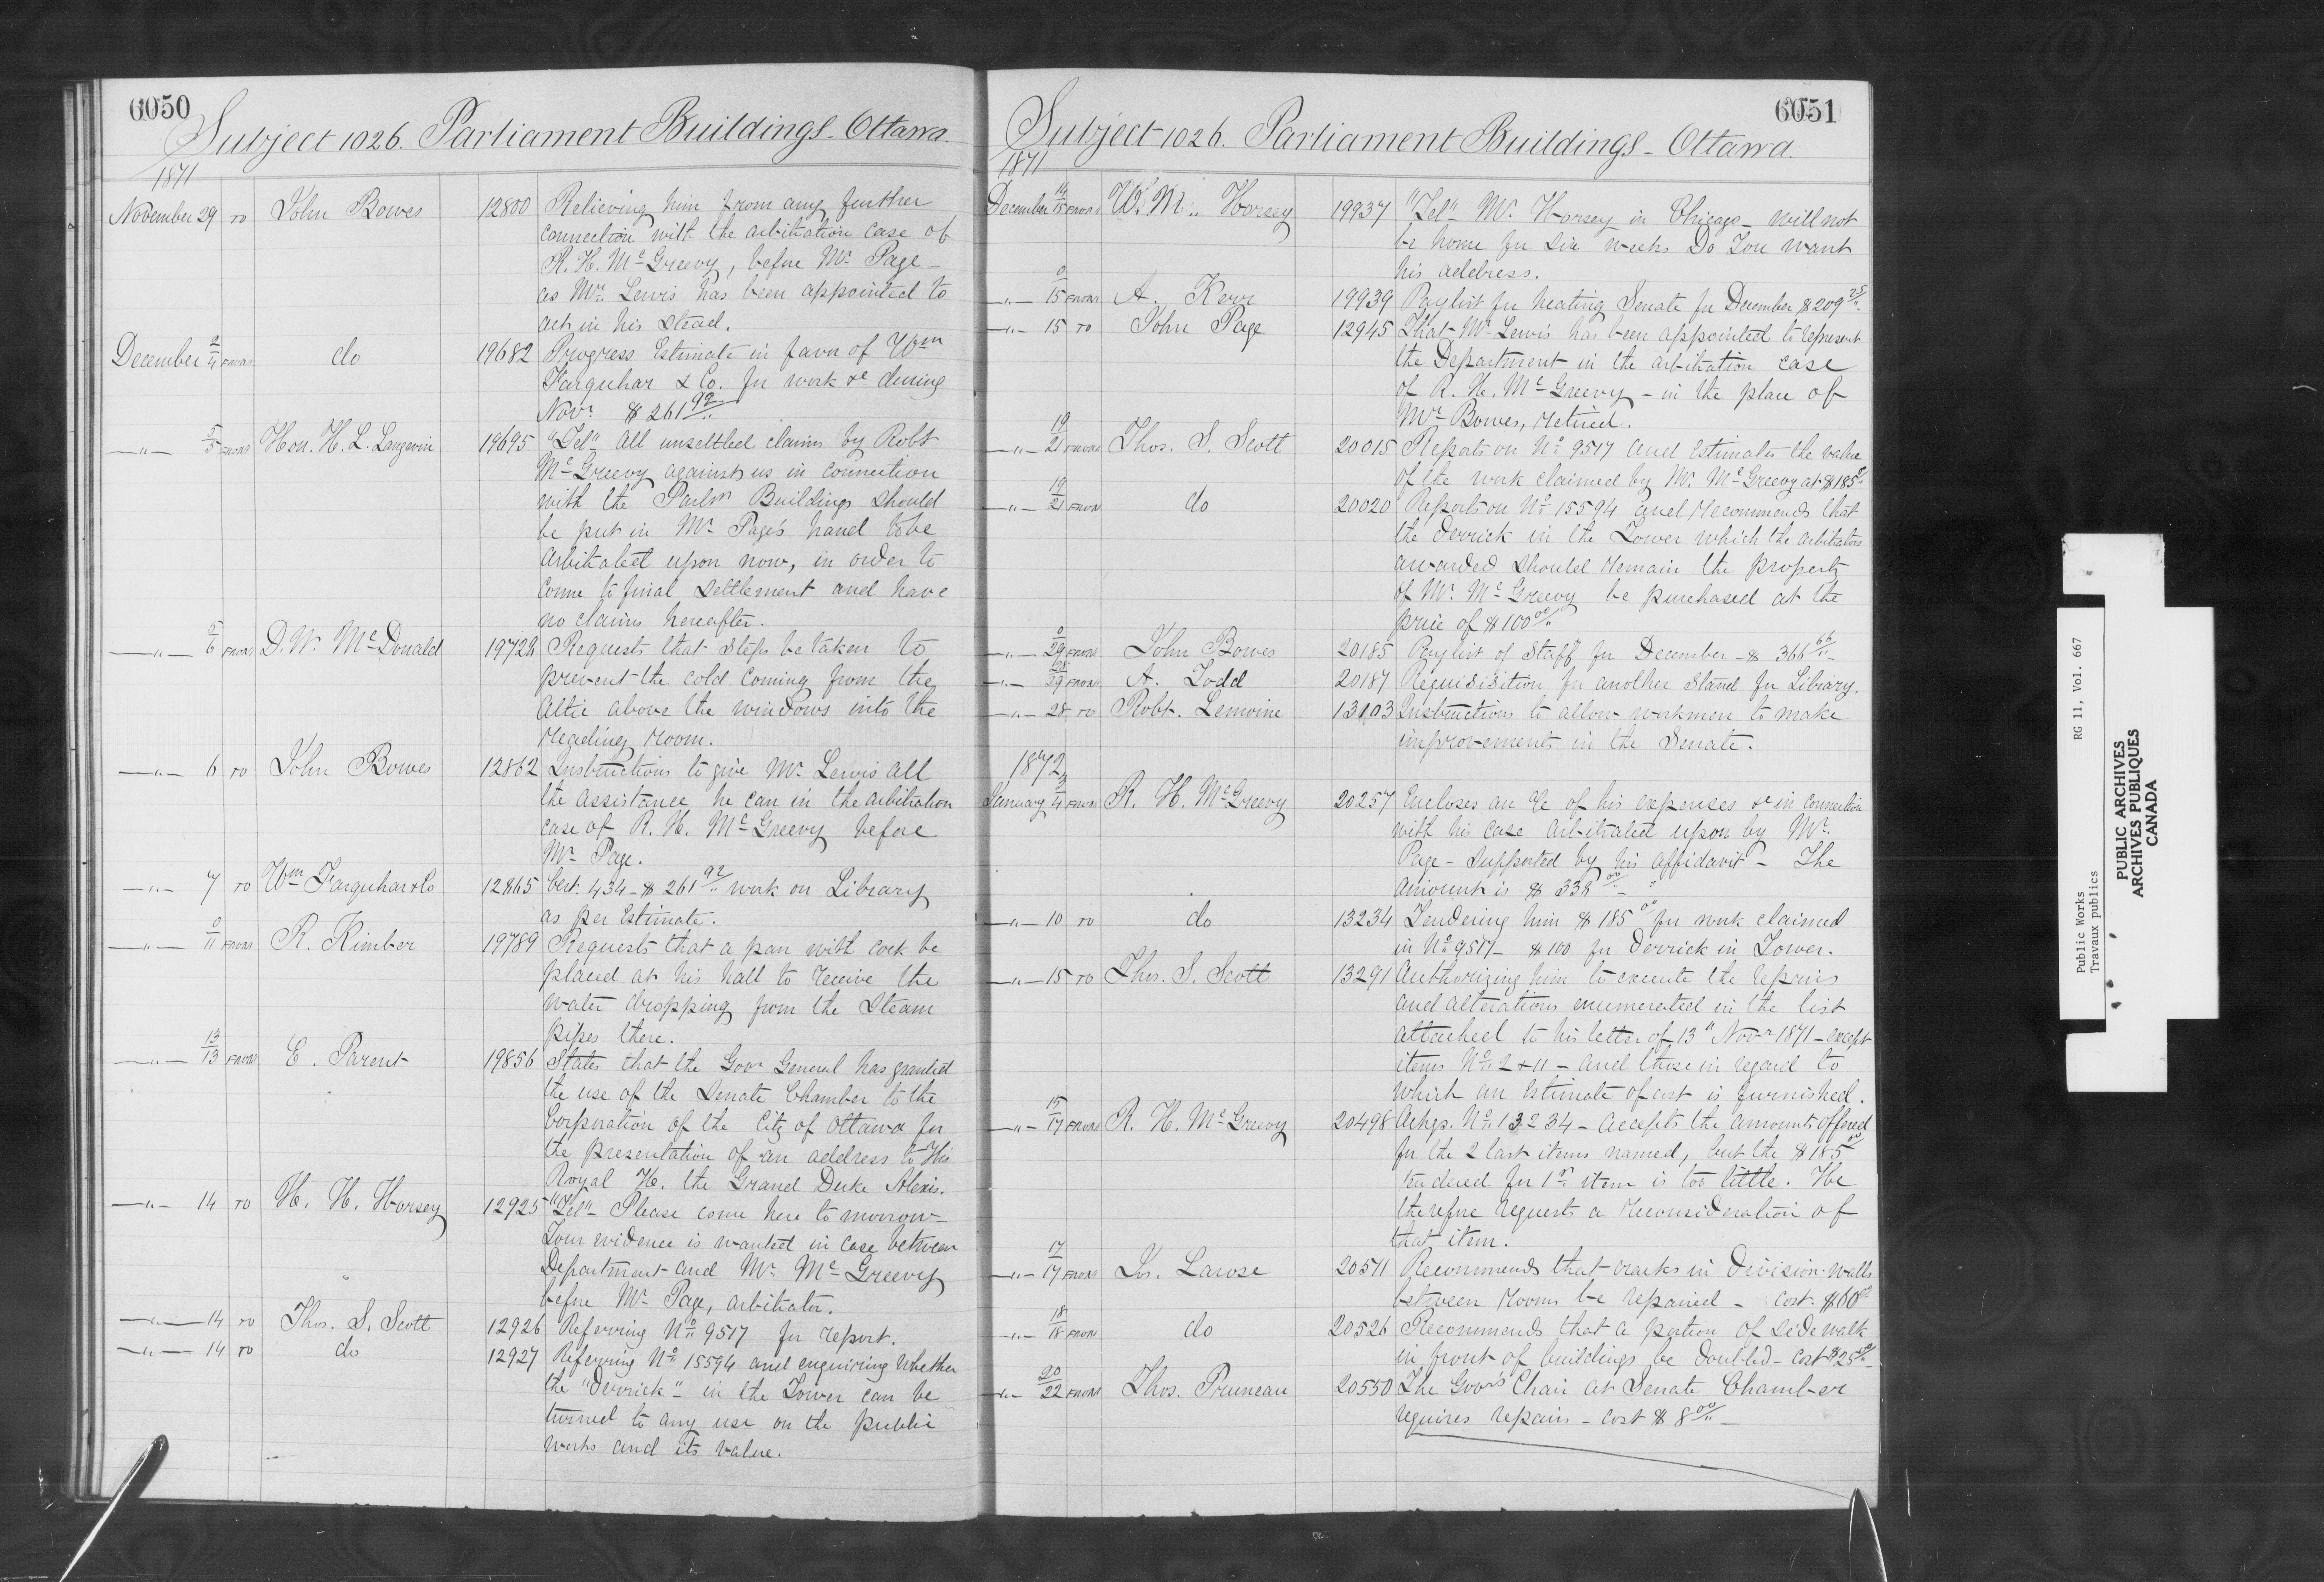 6050
Subject 1026. Parliament Buildings - Ottawa.
1871
November 29 TO John Bowes 12800 Relieving him from any further
connection with the arbitration case of
R. H. McGreevy, before Mr. Page -
as Mr. Lewis has been appointed to
act in his stead.
December 2/4 FROM do 19682 Progress Estimate in favor of Wm
Farquhar & Co. for work &c during
Novr. $261 92/"
—"— 5/5 FROM Hon. H. L. Langevin 19695 "Tel" All unsettled claims by Robt
McGreevy against us in connection
with the Parlm Buildings should
be put in Mr. Page's hand to be
arbitrated upon now, in order to
come to final settlement and have
no claims hereafter.
—"— 5/6 FROM D. W. McDonald 19722 Requests that steps be taken to
prevent the cold coming from the
Attic above the windows into the
Reading Room.
—"— 6 TO John Bowes 12862 Instructions to give Mr. Lewis all
the assistance he can in the arbitration
case of R. H. McGreevy before
Mr. Page.
—"— 7 TO Wm Farquhar & Co 12865 Cert. 434 - $261 92/" work on Library
as per Estimate.
—"— 0/11 FROM R. Kimber 19789 Requests that a pan with cock be
placed at his hall to receive the
water dropping from the Steam
pipes there.
—"— 13/13 FROM E. Parent 19856 States that the Govr General has granted
the use of the Senate Chamber to the
Corporation of the City of Ottawa for
the presentation of an address to His
Royal H. the Grand Duke Alexis.
—"— 14 TO H. H. Horsey 12925 "Tel" - Please come here to morrow -
Your evidence is wanted in case between
Department and Mr. McGreevy
before Mr. Page, arbitrator.
—"— 14 TO Thos. S. Scott 12926 Referring No. 9517 for report.
—"— 14 TO do 12927 Referring No. 15594 and enquiring whether
the "derrick" in the Tower can be
turned to any use on the public
works and its value.
6051
Subject 1026. Parliament Buildings - Ottawa.
1871
December 14/15 FROM W. M. Horsey 19937 "Tel" Mr. Horsey in Chicago - will not
be home for six weeks Do You want
his address.
—"— 0/15 FROM A. Kerr 19939 Paylist for heating Senate for December $209 25/"
—"— 15 TO John Page 12945 That Mr. Lewis has been appointed to represent
the Department in the arbitration case
of R. H. McGreevy - in the place of
Mr. Bowes, retired.
—"— 19/21 FROM Thos. S. Scott 20015 Reports on No. 9517 and Estimates the value
of the work claimed by Mr. McGreevy at $185"
—"— 19/21 FROM do 20020 Reports on No. 15594 and recommends that
the derrick in the Tower which the arbitrators
awarded should remain the property
of Mr. McGreevy be purchased at the
price of $100 00/"
—"— 0/29 FROM John Bowes 20185 Paylist of Staff for December - $366 66/" -
—"— 28/29 FROM A. Todd 20187 Requisisition for another Stand for Library.
—"— 28 TO Robt. Lemoine 13103 Instructions to allow workmen to make
improvements in the Senate.
1872
January 3/4 FROM R. H. McGreevy 20257 Encloses an a/c of his expenses &c in connection
with his case arbitrated upon by Mr.
Page - supported by his affidavit - The
amount is $338 00/" -
—"— 10 TO do 13234 Tendering him $185 00 for work claimed
in No. 9517 - $100 for derrick in Tower.
—"— 15 TO Thos. S. Scott 13291 Authorizing him to execute the repairs
and alterations enumerated in the list
attached to his letter of 13" Novr 1871 - except
items Nos. 2 & 11 - and those in regard to
which an Estimate of cost is furnished.
—"— 15/17 FROM R. H. McGreevy 20498 Ackgs. No. 13234 - accepts the amounts offered
for the 2 last items named, but the $185 00
tendered for 1st item is too little. He
therefore requests a reconsideration of
that item.
—"— 17/17 FROM Js. Larose 20511 Recommends that cracks in Division-walls
between Rooms be repaired - Cost. $60 00
—"— 18/18 FROM do 20526 Recommends that a portion of sidewalk
in front of buildings be doubled - Cost $25 00/" -
—"— 20/22 FROM Thos. Pruneau 20550 The Govr's Chair at Senate Chamber
requires repairs - cost $8 00/" -
Public Works
Travaux publics
RG 11, Vol. 667
PUBLIC ARCHIVES
ARCHIVES PUBLIQUES
CANADA